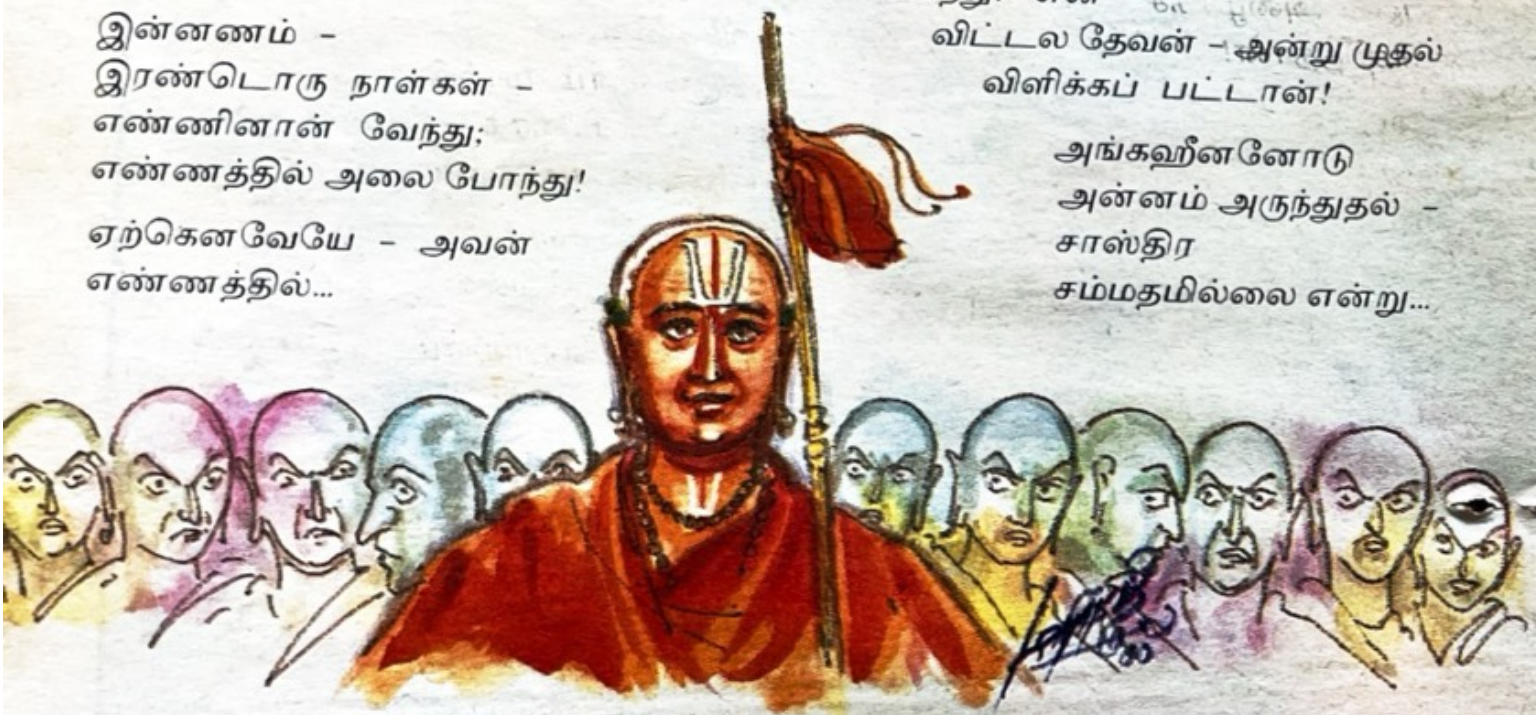 இன்னணம் –
இரண்டொரு நாள்கள் –
எண்ணினான் வேந்து;
எண்ணத்தில் அலை போந்து!
ஏற்கெனவேயே – அவன்
எண்ணத்தில்...
விட்டல தேவன் – அன்று முதல்
விளிக்கப் பட்டான்!
அங்கஹீனனோடு
அன்னம் அருந்துதல் –
சாஸ்திர
சம்மதமில்லை என்று...